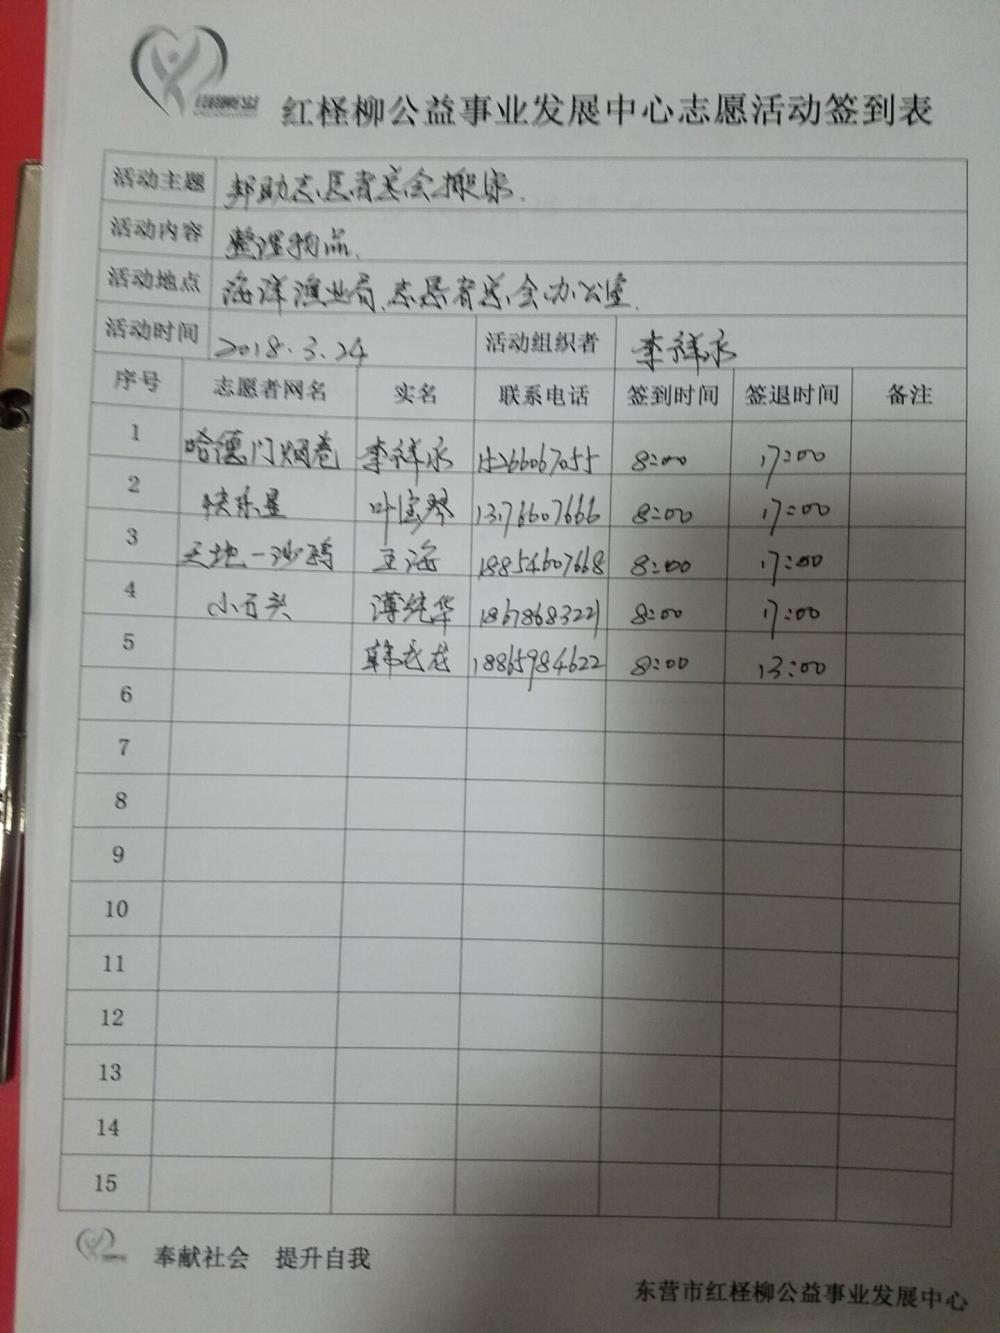 红柽柳公益事业发展中心志愿活动签到表
活动主题 帮助志愿者总会搬家.
活动内容 整理物品.
活动地点 海洋渔业局.志愿者总会办公室.
活动时间 2018.3.24 活动组织者 李祥永
序号 志愿者网名 实名 联系电话 签到时间 签退时间 备注
1 哈德门烟卷 李祥永 15266067055 8:00 17:00
2 快乐星 叶宝琴 13176607666 8:00 17:00
3 天地一沙鸥 王海 18854607668 8:00 17:00
4 小石头 薄纯华 18678683221 8:00 17:00
5 韩 龙 18865984622 8:00 13:00
6
7
8
9
10
11
12
13
14
15
奉献社会 提升自我
东营市红柽柳公益事业发展中心